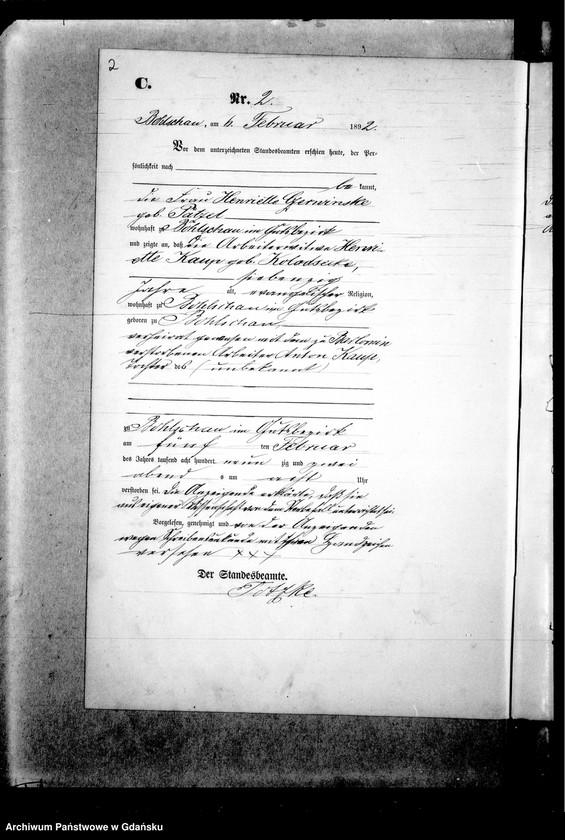 2
C.
Nr. 2.
Bohlschau, am 6. Februar 1892.
Vor dem unterzeichneten Standesbeamten erschien heute, der Per-
sönlichkeit nach
be kannt,
die Frau Henriette Czerwinske
geb. Patzel
wohnhaft zu Bohlschau im Gutsbezirk
und zeigte an, daß die Arbeiterwitwe Henri-
ette Kaup geb. Kolodseike,
siebenzig
Jahre alt, evangelischer Religion,
wohnhaft zu Bohlschau im Gutsbezirk
geboren zu Bohlschau,
verheirat gewesen mit dem zu
verstorbenen Arbeiter Anton Kaup,
Tochter des (unbekannt)
zu Bohlschau im Gutsbezirk
am fünf ten Februar
des Jahres tausend acht hundert neun zig und zwei
abend s um acht Uhr
verstorben sei. Die Anzeigende erklärte, daß sie
aus eigener Wissenschaft von dem Sterbefall unterrichtet sei.
Vorgelesen, genehmigt und von der Anzeigenden
wegen Schreibensunkunde mit ihrem Handzeichen
versehen xxx
Der Standesbeamte.
Totzke.
Archiwum Państwowe w Gdańsku